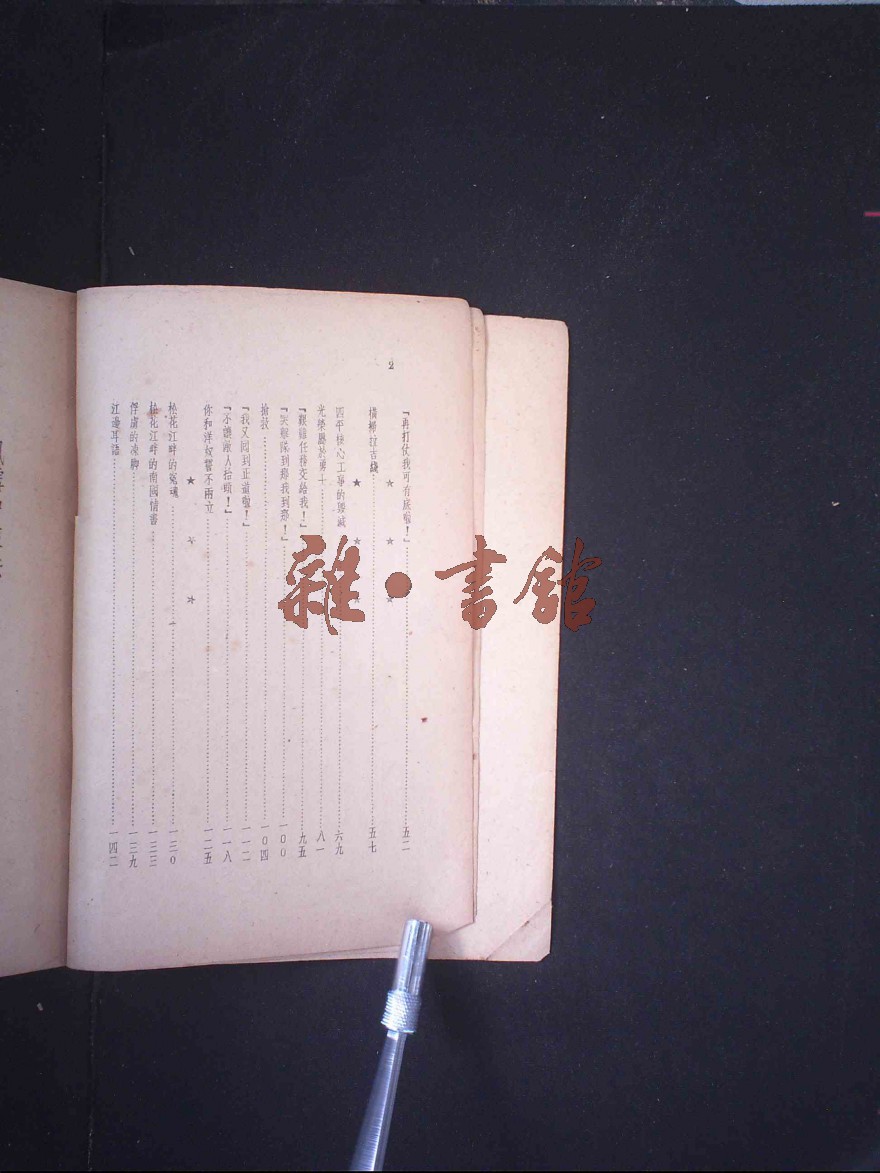 2
『再打仗我可有底啦!』……五二
★ ★ ★
橫掃拉吉綫……五七
★ ★ ★
四平核心工事的毀滅……六九
光榮屬於勇士……八一
『艱鉅任務交給我!』……九五
『突擊隊到那我到那!』……一〇〇
搶救……一〇四
『我又回到正道啦!』……一一二
『不讓敵人抬頭!』……一一八
你和洋奴誓不兩立……一二五
★ ★ ☆
松花江畔的冤魂……一三〇
松花江畔的南國情書……一三三
俘虜的凍脚……一三九
江邊耳語……一四二
雜·書館